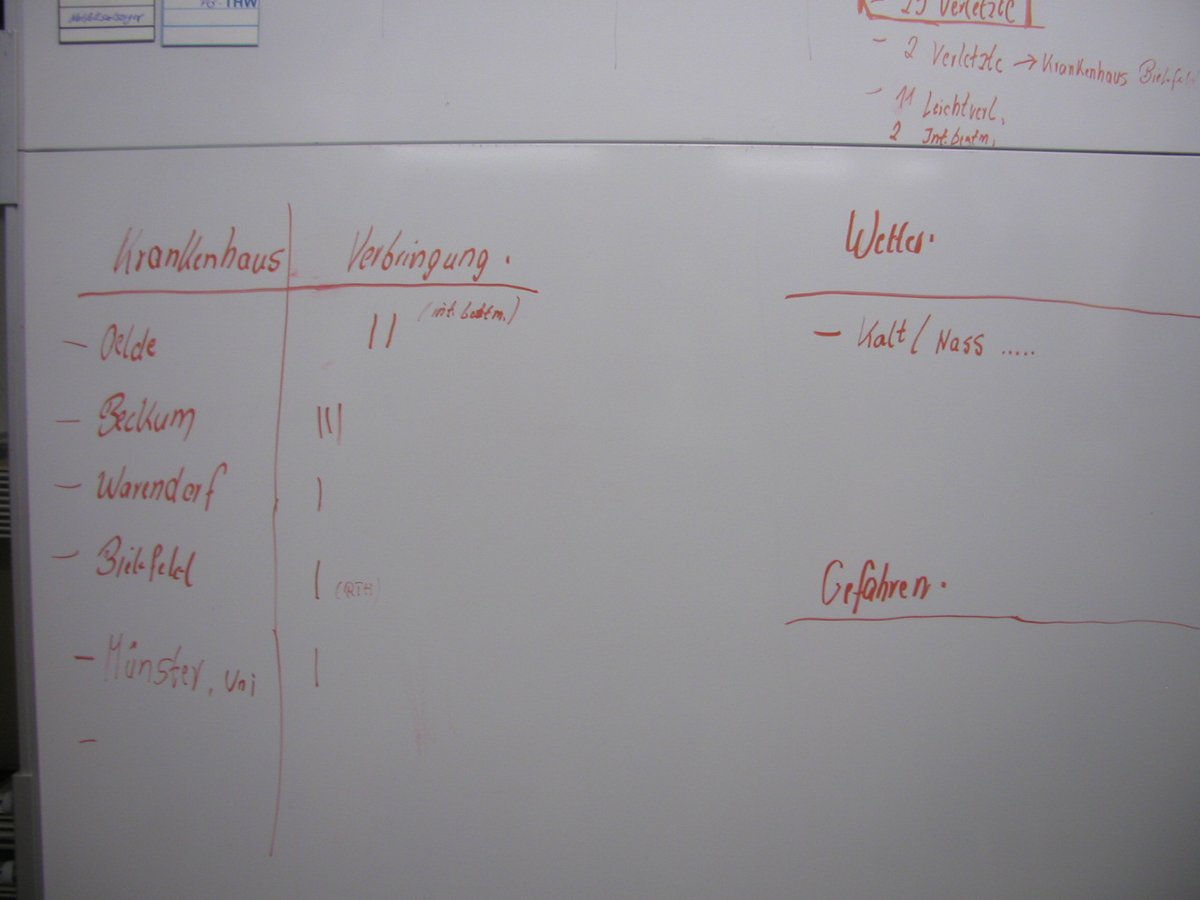 Notfallseelsorger
THW
Verletzte
- 2 Verletzte → Krankenhaus Bielefeld
- 11 Leichtverl.
2 Int. beatm.
Krankenhaus Verbringung.
- Oelde || (int. beatm.)
- Beckum |||
- Warendorf |
- Bielefeld | (RTH)
- Münster, Uni |
-
Wetter.
- Kalt / Nass .....
Gefahren.